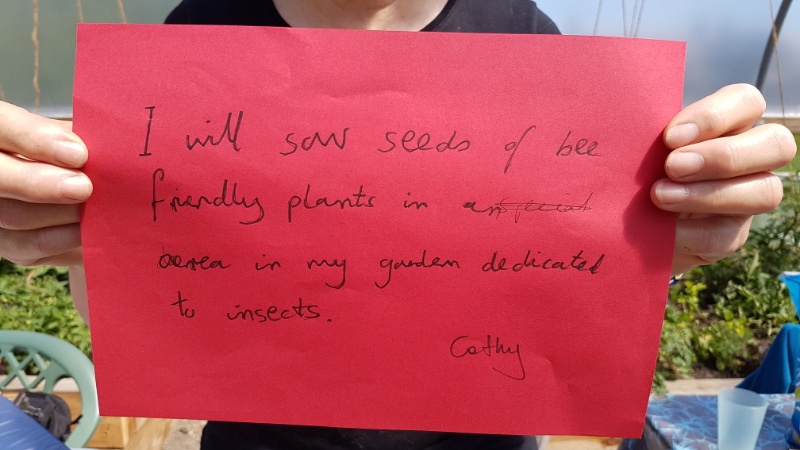 I will sow seeds of bee
friendly plants in an
area in my garden dedicated
to insects.
Cathy